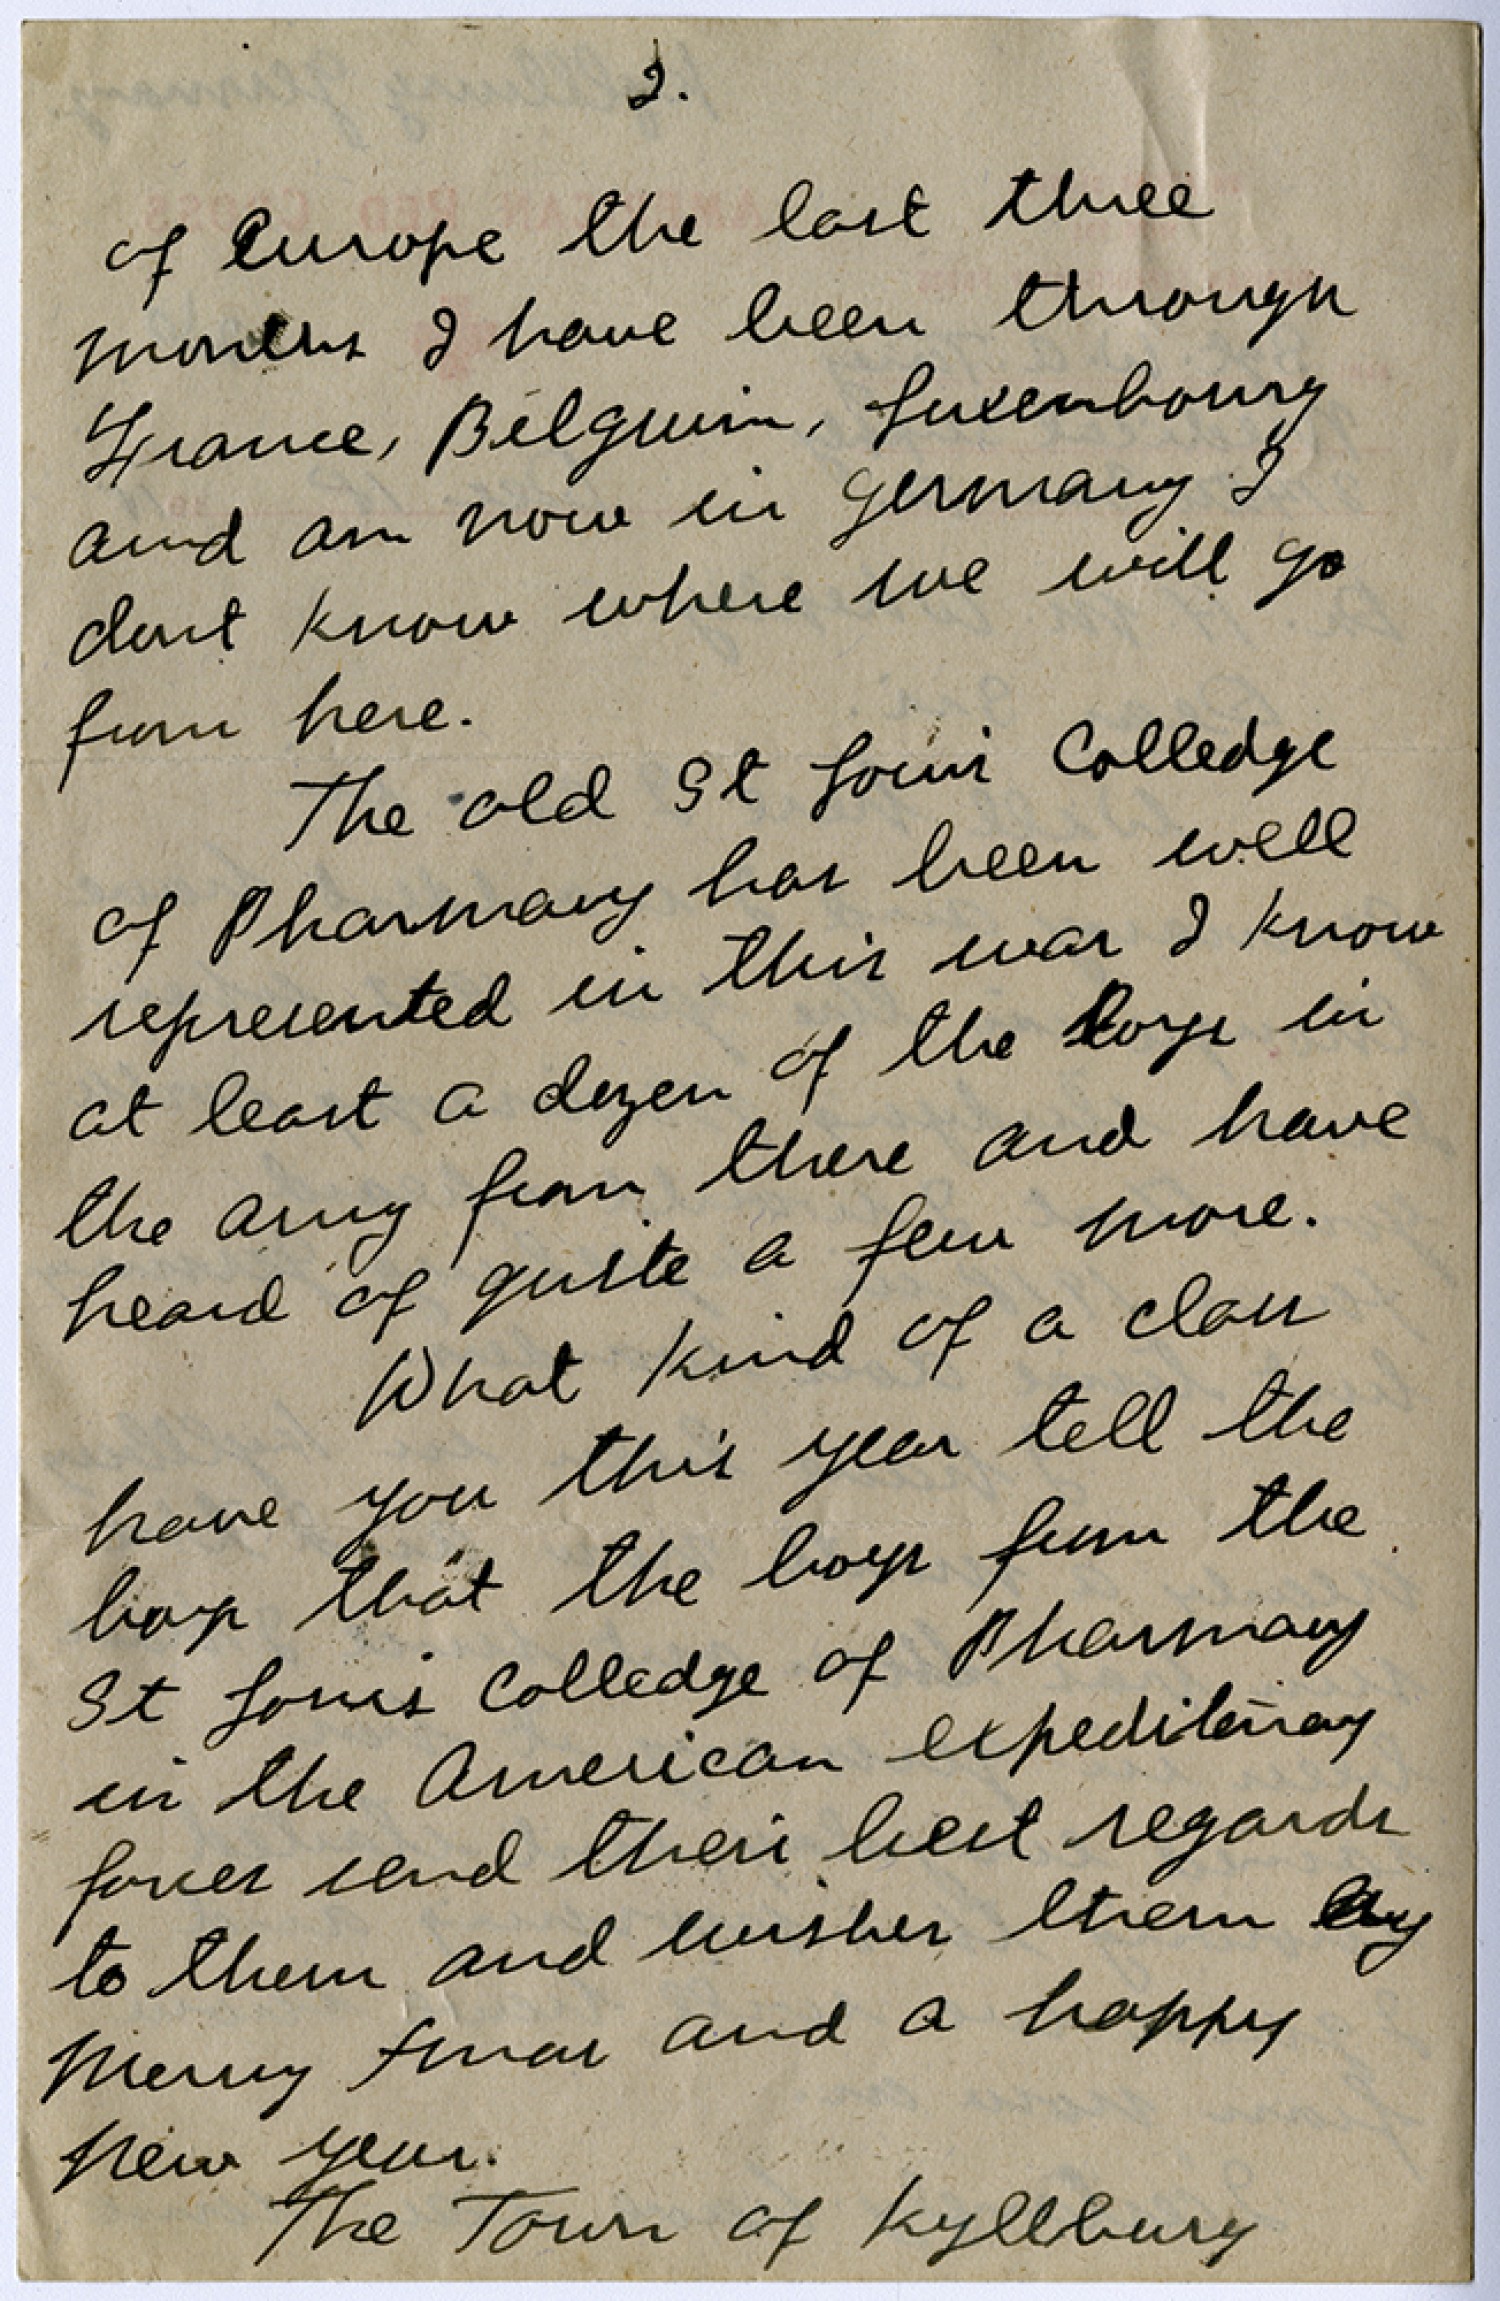 2.
of Europe the last three
months I have been through
France, Belguim, Luxenbourg
and am now in Germany I
dont know where we will go
from here.
The old St Louis Colledge
of Pharmacy has been well
represented in this war I know
at least a dozen of the boys in
the army from there and have
heard of quite a few more.
What kind of a class
have you this year tell the
boys that the boys from the
St Louis Colledge of Pharmacy
in the American expeditinary
forces send their best regards
to them and wishes them
Merry Xmas and a happy
New year.
The Town of Kyllburg